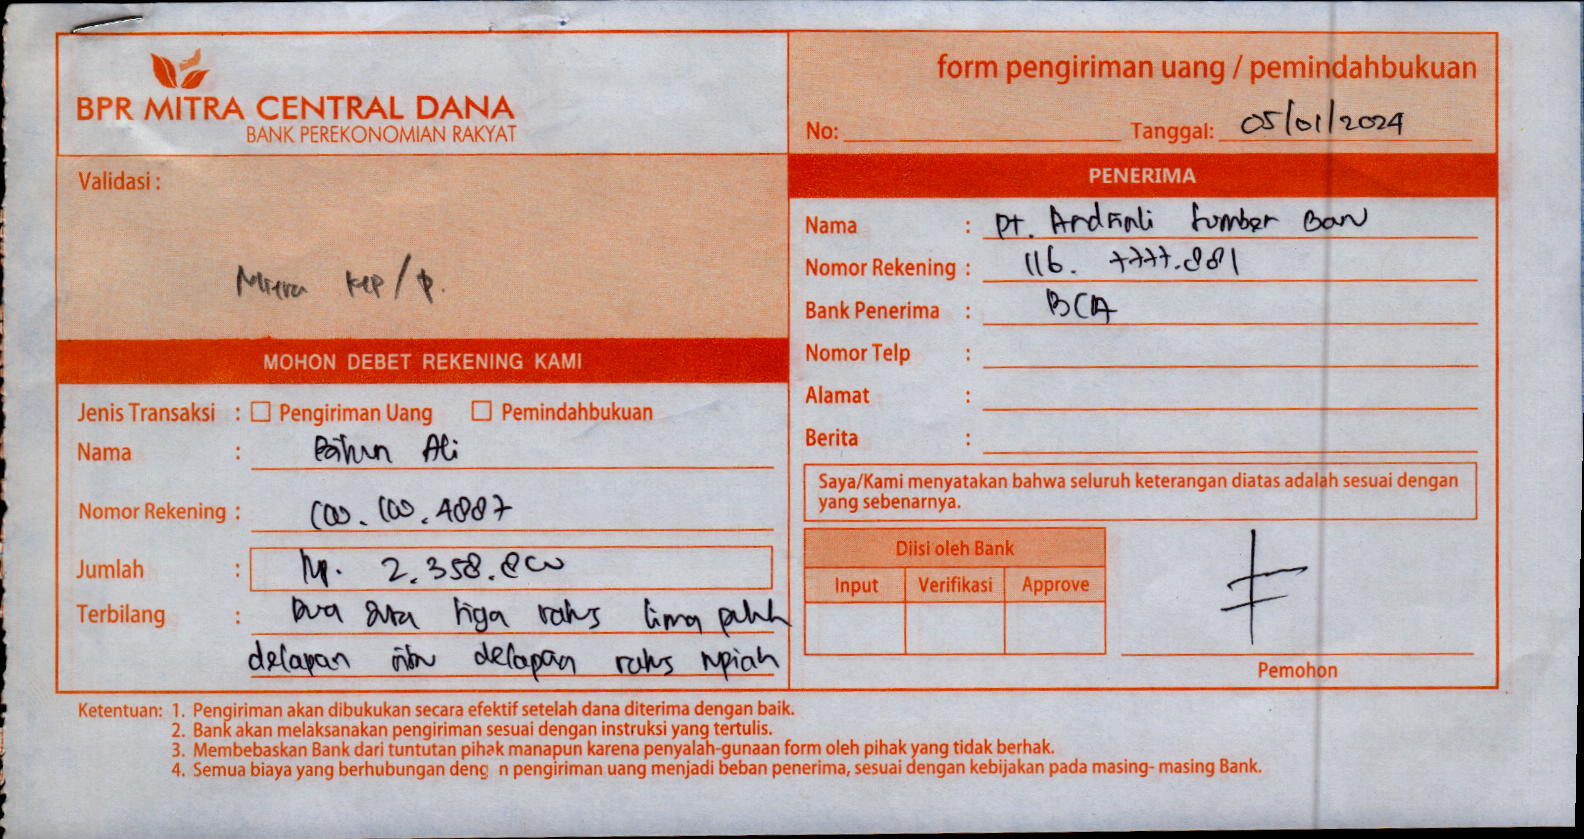 BPR MITRA CENTRAL DANA
BANK PEREKONOMIAN RAKYAT
form pengiriman uang / pemindahbukuan
No: Tanggal: 05/01/2024
Validasi :
Mitra
MOHON DEBET REKENING KAMI
Jenis Transaksi : Pengiriman Uang Pemindahbukuan
Nama : Ali
Nomor Rekening : 100.100.4887
Jumlah : Rp. 2.358.800
Terbilang : Dua juta tiga ratus lima puluh
delapan ribu delapan ratus rupiah
PENERIMA
Nama : PT. Sumber Ban
Nomor Rekening : 116. 7777.881
Bank Penerima : BCA
Nomor Telp :
Alamat :
Berita :
Saya/Kami menyatakan bahwa seluruh keterangan diatas adalah sesuai dengan
yang sebenarnya.
Diisi oleh Bank
Input Verifikasi Approve
Pemohon
Ketentuan: 1. Pengiriman akan dibukukan secara efektif setelah dana diterima dengan baik.
2. Bank akan melaksanakan pengiriman sesuai dengan instruksi yang tertulis.
3. Membebaskan Bank dari tuntutan pihak manapun karena penyalah-gunaan form oleh pihak yang tidak berhak.
4. Semua biaya yang berhubungan deng n pengiriman uang menjadi beban penerima, sesuai dengan kebijakan pada masing- masing Bank.